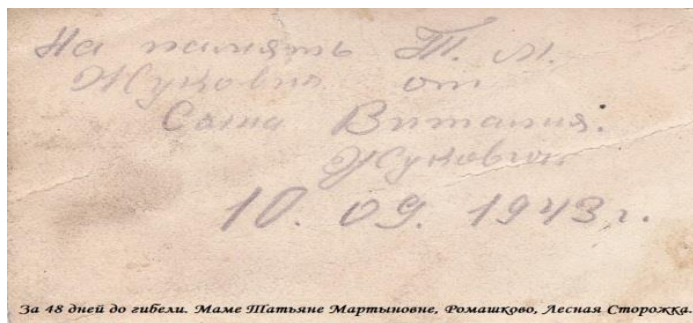 На память Т. М.
Жукович от
Сына Виталия.
Жукович
10. 09. 1943 г.
За 48 дней до гибели. Маме Татьяне Мартыновне, Ромашково, Лесная Сторожка.